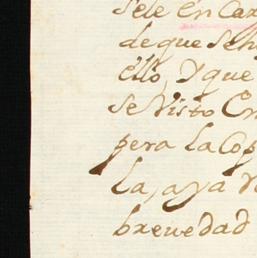 sele en Ca
de que se h
ello, y que
se Visto En
pera la Cop
la, aya
brevedad